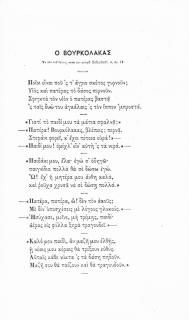 Ο ΒΟΥΡΚΟΛΑΚΑΣ
Ποῖοι εἶναι ποῦ 'ς τ' ἄγρια σκότος γυρνοῦν;
Υἱὸς καὶ πατέρας τὸ δάσος περνοῦν.
τὸν νέον ὁ πατέρας βαστᾷ
'ς ταὶς δυώ του ἀγκάλαις 'ς τὸν ἵππον 'μπροστά.
«Γιατί τὸ παιδί μου τὰ μάτια σφαλνᾷς;
—Πατέρα! Βουρκόλακας, βλέπεις; περνᾷ,
Στεφάνι φορεῖ, κ' ἔχει τέτοια οὐρά!—
—Παιδί μου! ὀμίχλ' εἶν' αὐτὴ 'ς τὰ νερά.»—
«Παιδάκι μου, ἔλα! ἐγὼ σ' ὁδηγῶ·
παιγνίδια πολλὰ θὰ σὲ δώσω ἐγώ.
Ὤ! ἔχ' ἡ μητέρα μου ἄνθη καλά,
καὶ ῥοῦχα χρυσᾶ νὰ σὲ δώσῃ πολλά.»
«Πατέρα, πατέρα, ὤ! δὲν τὸν ἀκοῦς;
Μὲ δίν' ὑποσχέσεις μὲ λόγους γλυκούς.—
—Ἡσύχασε, μεῖνε, μὴ τρέμῃς, παιδί·
ἀέρας εἰς φύλλα ξηρὰ τραγουδεῖ.»
«Καλό μου παιδί, ἂν μαζῆ μου ἐλθῇς,
ᾑ κόραις μου κόραις θὰ παίξουν εὐθύς.
Αὐταὶς κάθε νύκτα 'ς τὰ δάση πηδοῦν.
Μαζῆ σου θὰ παίζουν καὶ θὰ τραγουδοῦν.»